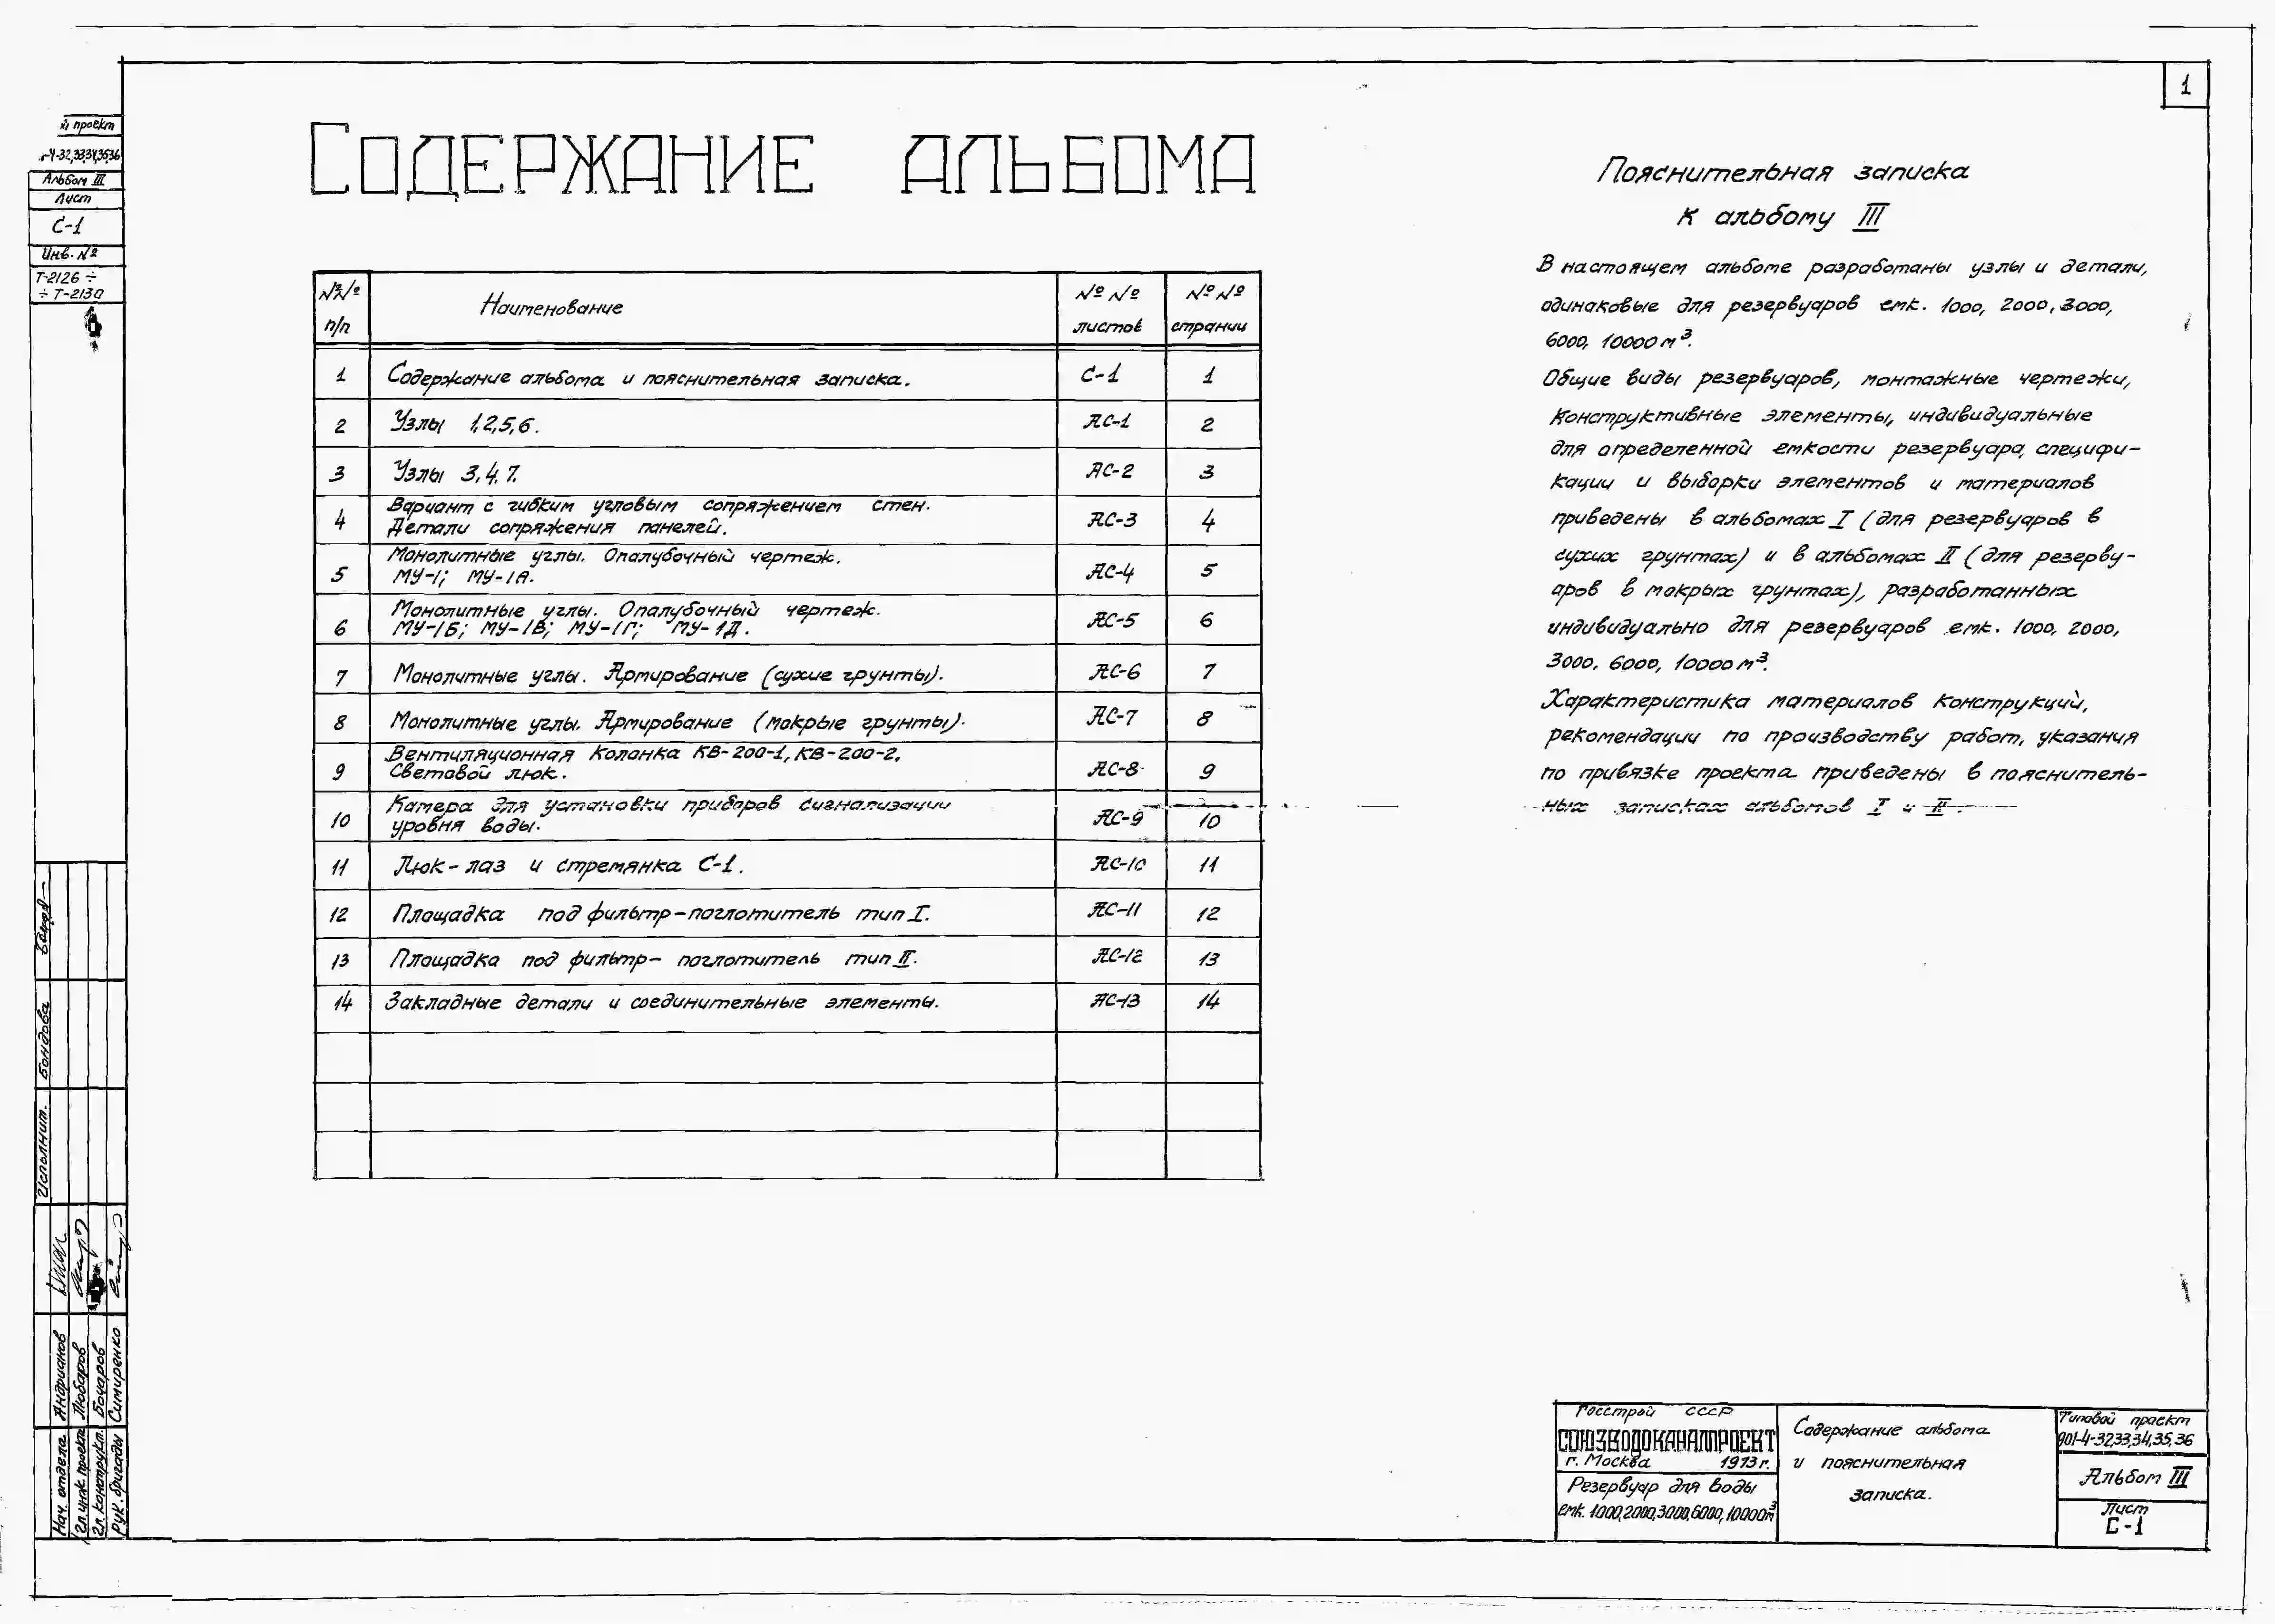 1
й проект
-4-32,33,34,35,36
Альбом III
Лист
С-1
Инв. №
Т-2126 ÷
÷ Т-2130
Содержание альбома
№№ п/п Наименование №№ листов №№ страниц
1 Содержание альбома и пояснительная записка. С-1 1
2 Узлы 1,2,5,6. АС-1 2
3 Узлы 3,4,7. АС-2 3
4 Вариант с гибким угловым сопряжением стен.
Детали сопряжения панелей. АС-3 4
5 Монолитные углы. Опалубочный чертеж.
МУ-1; МУ-1А. АС-4 5
6 Монолитные углы. Опалубочный чертеж.
МУ-1Б; МУ-1В; МУ-1Г; МУ-1Д. АС-5 6
7 Монолитные углы. Армирование (сухие грунты). АС-6 7
8 Монолитные углы. Армирование (мокрые грунты). АС-7 8
9 Вентиляционная колонка КВ-200-1, КВ-200-2.
Световой люк. АС-8 9
10 Камера для установки приборов сигнализации
уровня воды. АС-9 10
11 Люк-лаз и стремянка С-1. АС-10 11
12 Площадка под фильтр-поглотитель тип I. АС-11 12
13 Площадка под фильтр-поглотитель тип II. АС-12 13
14 Закладные детали и соединительные элементы. АС-13 14
Пояснительная записка
к альбому III
В настоящем альбоме разработаны узлы и детали,
одинаковые для резервуаров емк. 1000, 2000, 3000,
6000, 10000 м³.
Общие виды резервуаров, монтажные чертежи,
конструктивные элементы, индивидуальные
для определенной емкости резервуара, специфи-
кации и выборки элементов и материалов
приведены в альбомах I (для резервуаров в
сухих грунтах) и в альбомах II (для резерву-
аров в мокрых грунтах), разработанных
индивидуально для резервуаров емк. 1000, 2000,
3000, 6000, 10000 м³.
Характеристика материалов конструкций,
рекомендации по производству работ, указания
по привязке проекта приведены в пояснитель-
ных записках альбомов I и II.
Исполнит. Бондова
Нач. отдела Андрианов
Гл. инж. проекта Любаров
Гл. конструкт. Бочаров
Рук. бригады Симиренко
Госстрой СССР
СОЮЗВОДОКАНАЛПРОЕКТ
г. Москва 1973 г.
Резервуар для воды
емк. 1000,2000,3000,6000,10000м³
Содержание альбома
и пояснительная
записка.
Типовой проект
901-4-32,33,34,35,36
Альбом III
Лист
С-1